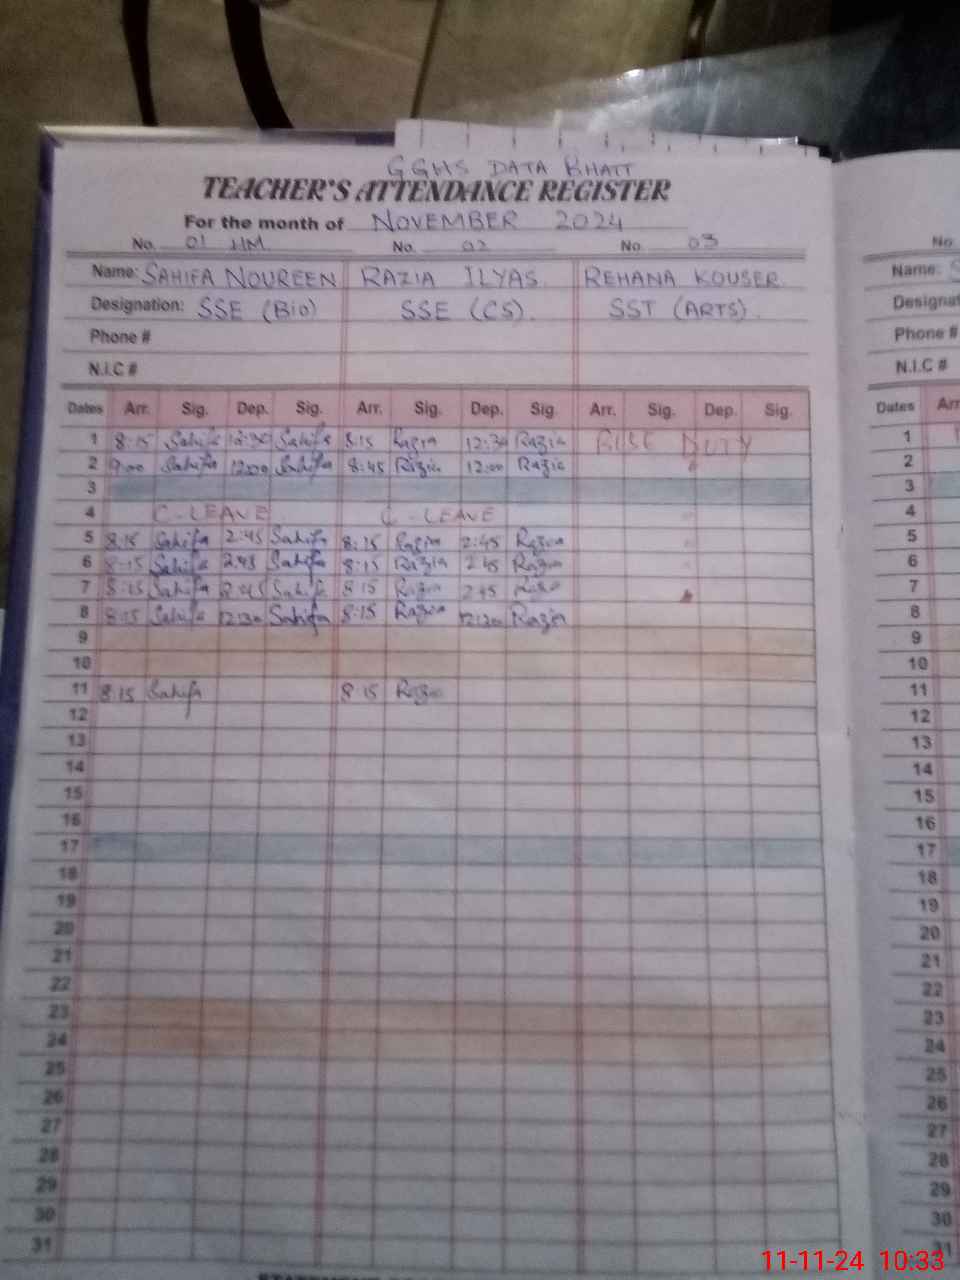 GGHS DATA BHATT
TEACHER'S ATTENDANCE REGISTER
For the month of NOVEMBER 2024
No. 01 HM No. 02 No. 03 No
Name: SAHIFA NOUREEN RAZIA ILYAS REHANA KOUSER Name: S
Designation: SSE (BIO) SSE (CS). SST (ARTS). Designat
Phone # Phone #
N.I.C # N.I.C #
Dates Arr. Sig. Dep. Sig. Arr. Sig. Dep. Sig. Arr. Sig. Dep. Sig. Dates Arr
1 8:15 Sahifa 12:30 Sahifa 8:15 Razia 12:30 Razia DUTY 1
2 9:00 Sahifa 12:00 Sahifa 8:45 Razia 12:00 Razia 2
3 3
4 C-LEAVE C-LEAVE 4
5 8:15 Sahifa 2:45 Sahifa 8:15 Razia 2:45 Razia 5
6 8:15 Sahifa 2:45 Sahifa 8:15 Razia 2:45 Razia 6
7 8:15 Sahifa Sahifa 8:15 Razia 2:45 7
8 8:15 Sahifa 12:30 Sahifa 8:15 Razia Razia 8
9 9
10 10
11 8:15 Sahifa 8:15 Razia 11
12 12
13 13
14 14
15 15
16 16
17 17
18 18
19 19
20 20
21 21
22 22
23 23
24 24
25 25
26 26
27 27
28 28
29 29
30 30
31 31
11-11-24 10:33